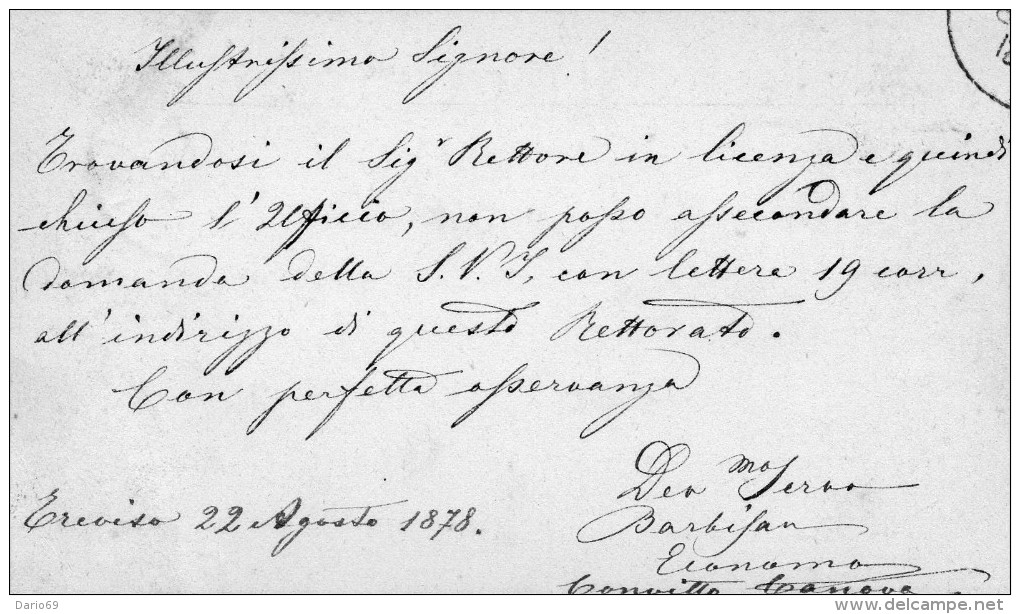 Illustrissimo Signore!
Trovandosi il Sigr Rettore in licenza e quindi
chiuso l'Ufficio, non posso assecondare la
domanda della S.V.I. con lettera 19 corr,
all'indirizzo di questo Rettorato.
Con perfetta osservanza
Dev mo Servo
Barbisan
Economo
Convitto Canova
Treviso 22 Agosto 1878.
Dario69
delcampe.net